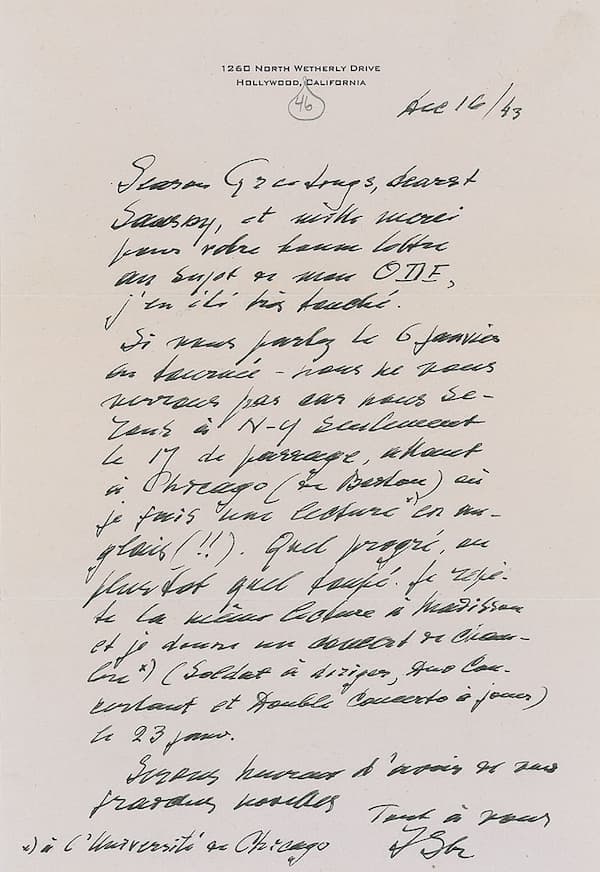 1260 North Wetherly Drive
Hollywood, California
46
Dec 16/43
Season Greetings, dearest
Sawsky, et mille merci
pour votre bonne lettre
au sujet de mon ODE,
j'en ai été très touché.
Si vous partez le 6 janvier
en tournée - nous ne vous
verrons pas car nous se-
rons à N-Y seulement
le 17 de passage, allant
à Chicago (de Boston) où
je fais "une lecture"*) en an-
glais (!!). Quel progré, ou
plustôt quel toupé. Je répè-
te la même lecture à Madisson
et je donne un concert de cham-
bre*) (Soldat à diriger, Duo Con-
certant et Double Concerto à jouer)
le 23 janv.
Serons heureux d'avoir de vos
grandes novelles
Tout à vous
I Str
*) à l'Université de Chicago